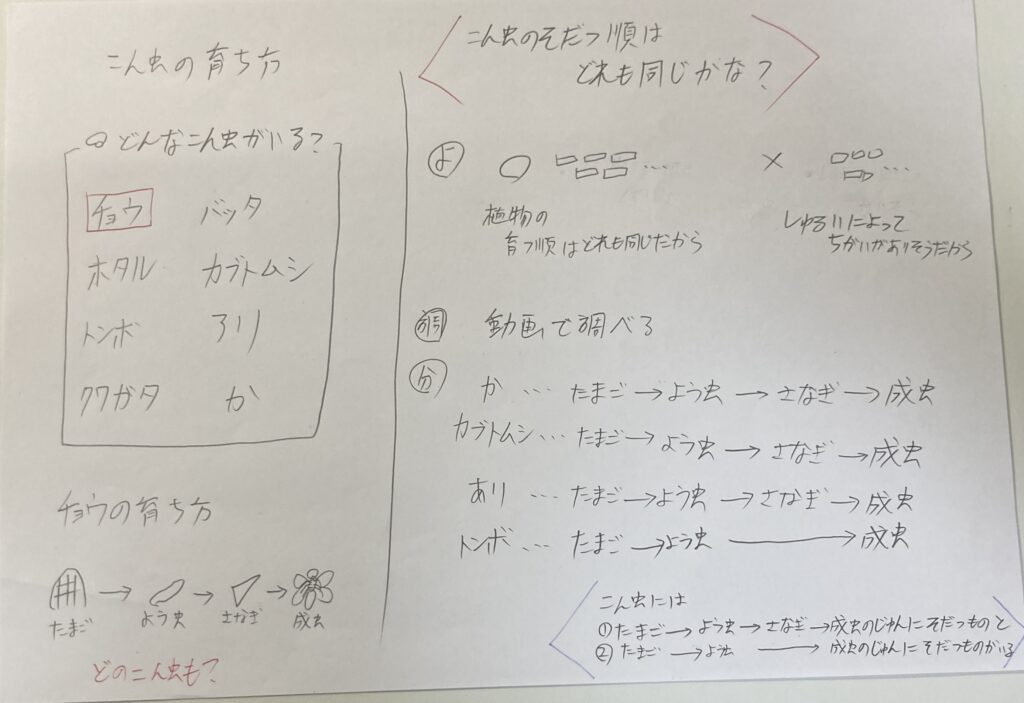 こん虫の育ち方
どんなこん虫がいる?
チョウ バッタ
ホタル カブトムシ
トンボ アリ
クワガタ か
チョウの育ち方
→ → →
たまご よう虫 さなぎ 成虫
どのこん虫も?
こん虫のそだつ順は
どれも同じかな?
よ ○ … × …
植物の
育つ順はどれも同じだから
しゅるいによって
ちがいがありそうだから
調 動画で調べる
分 か … たまご→よう虫→さなぎ→成虫
カブトムシ… たまご→よう虫→さなぎ→成虫
あり … たまご→よう虫→さなぎ→成虫
トンボ … たまご→よう虫→成虫
こん虫には
①たまご→よう虫→さなぎ→成虫のじゅんにそだつものと
②たまご→よう虫→成虫のじゅんにそだつものがいる